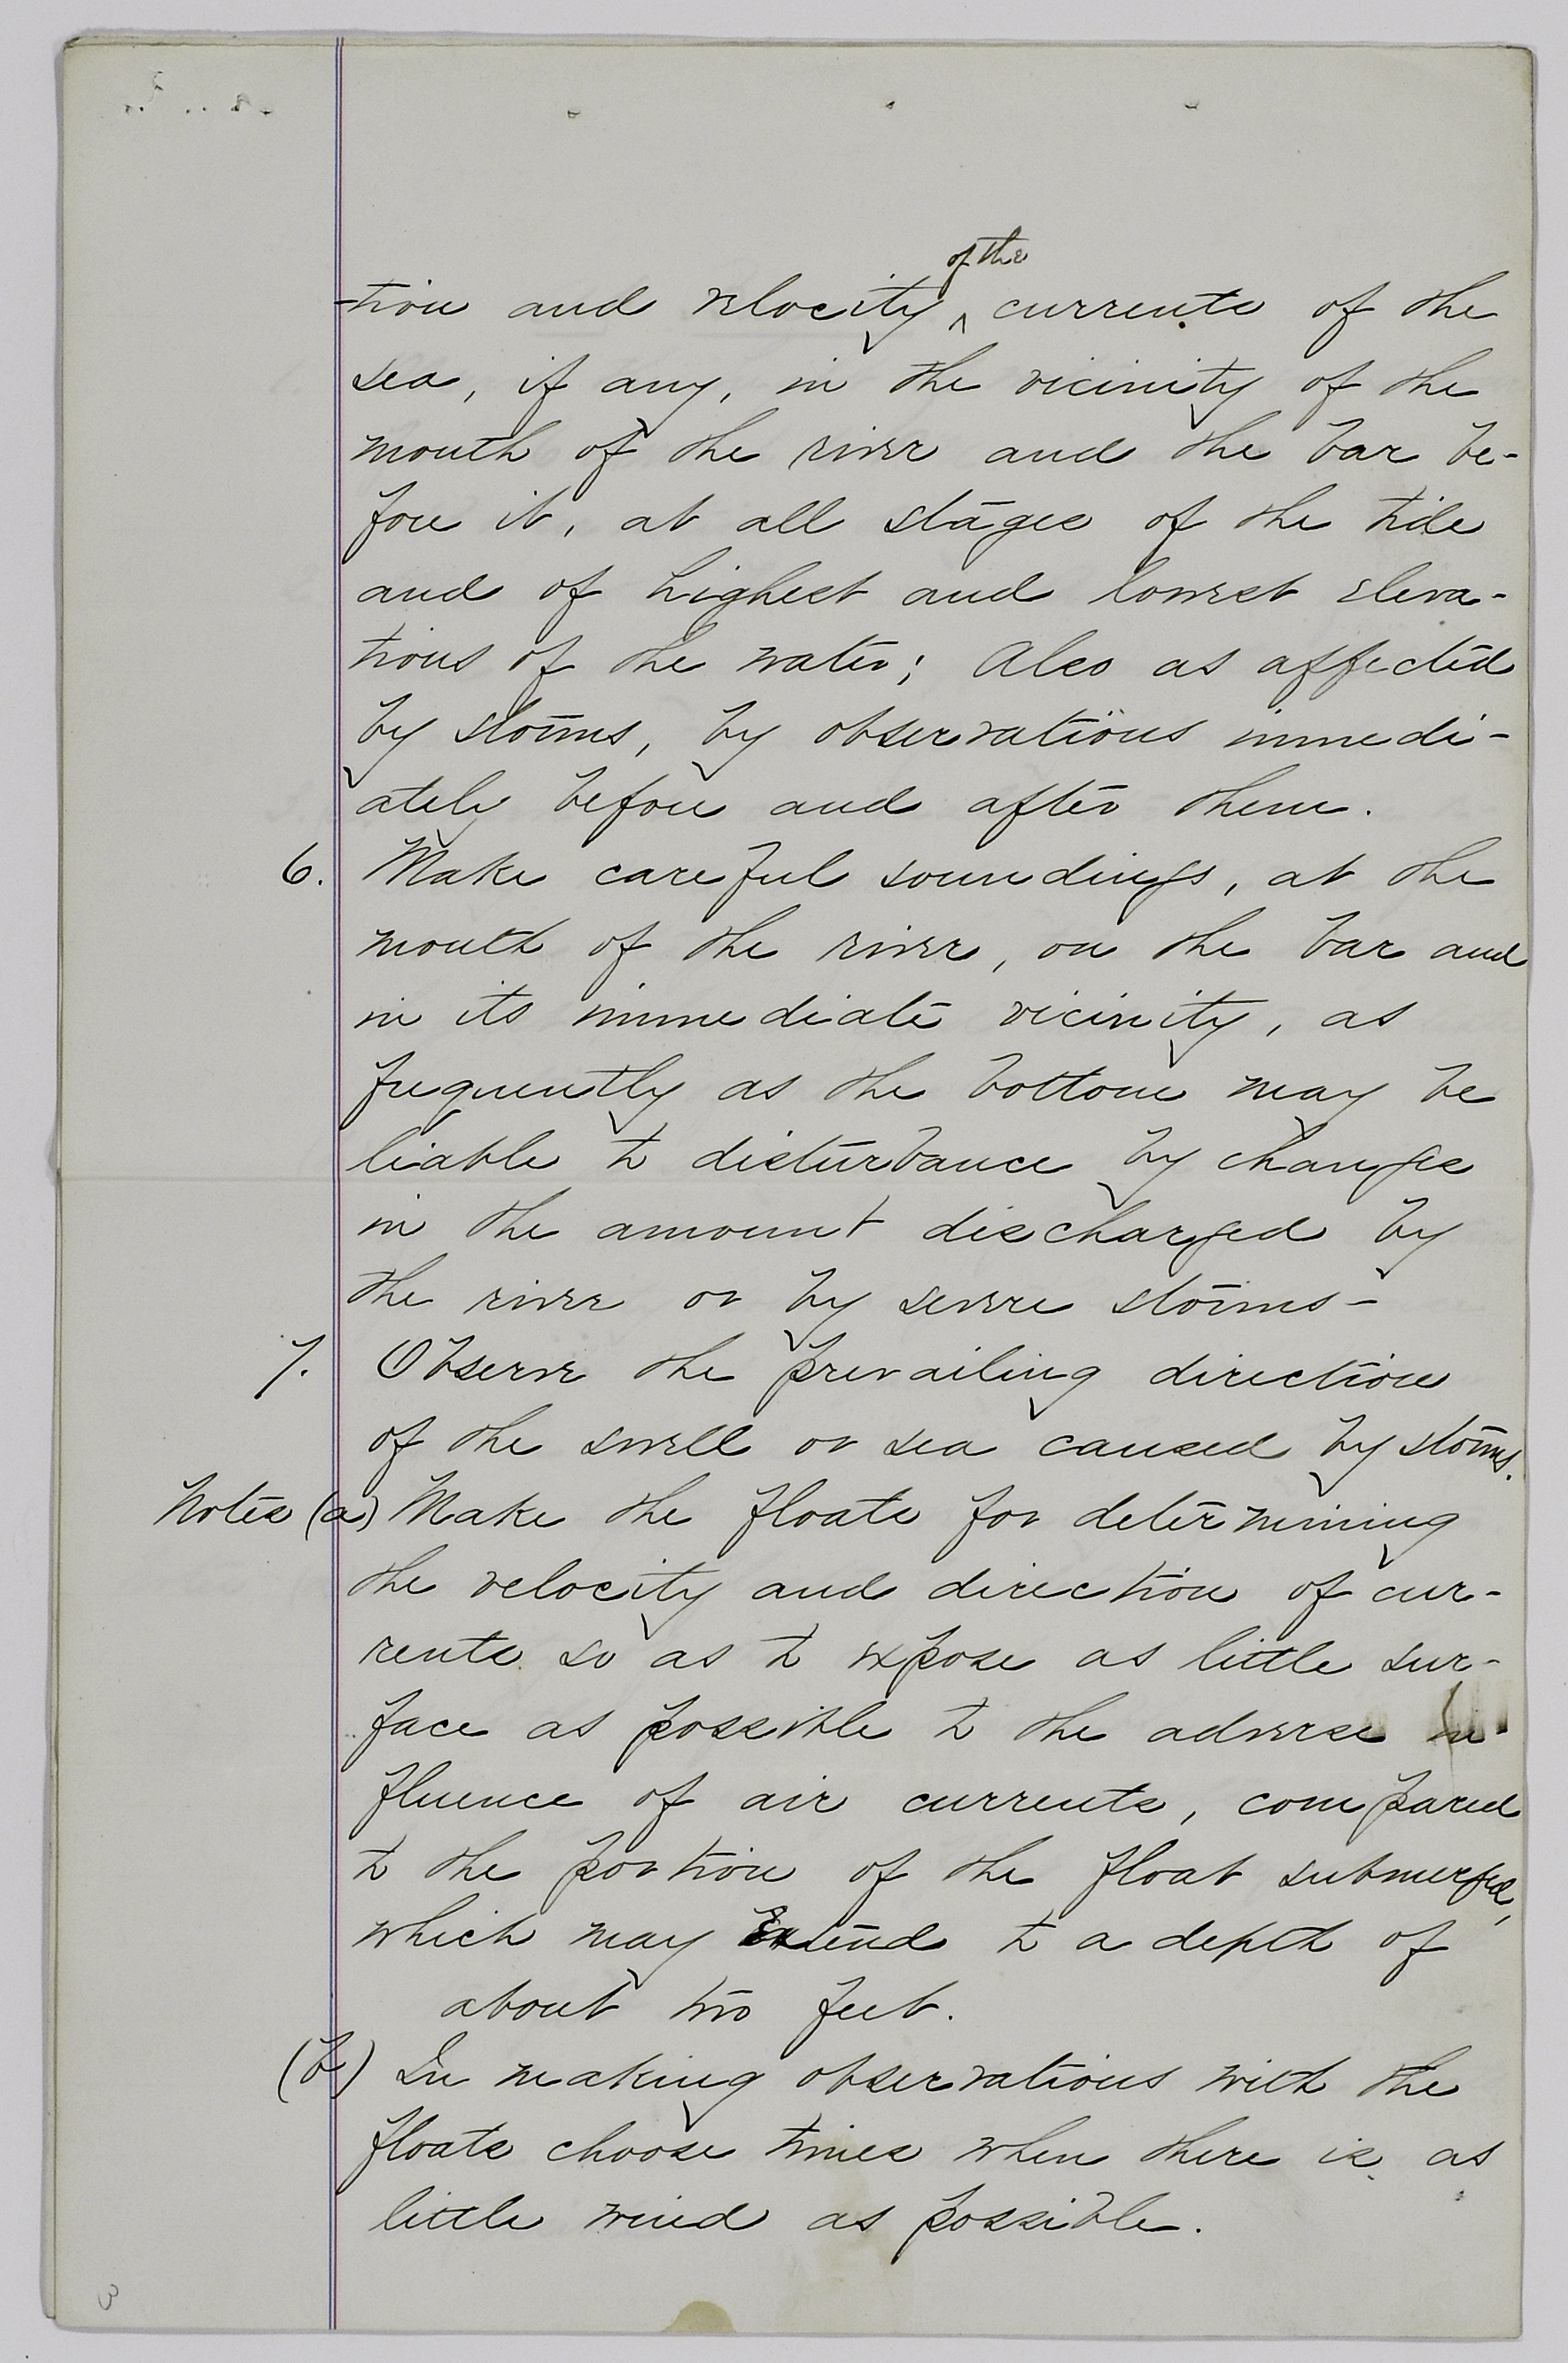 -tion and velocity ^of the^ currents of the
sea, if any, in the vicinity of the
mouth of the river and the bar be-
fore it, at all stages of the tide
and of highest and lowest eleva-
tions of the water; Also as affected
by storms, by observations immedi-
ately before and after them.
6. Make careful soundings, at the
mouth of the river, on the bar and
in its immediate vicinity, as
frequently as the bottom may be
liable to disturbance by changes
in the amount discharged by
the river or by severe storms-
7. Observe the prevailing direction
of the swell or sea caused by storms.
Notes (a) Make the floats for determining
the velocity and direction of cur-
rents so as to expose as little sur-
face as possible to the adverse in-
fluence of air currents, compared
to the portion of the float submerged,
which may Extend to a depth of
about two feet.
(b) In making observations with the
floats choose times when there is as
little wind as possible.
3